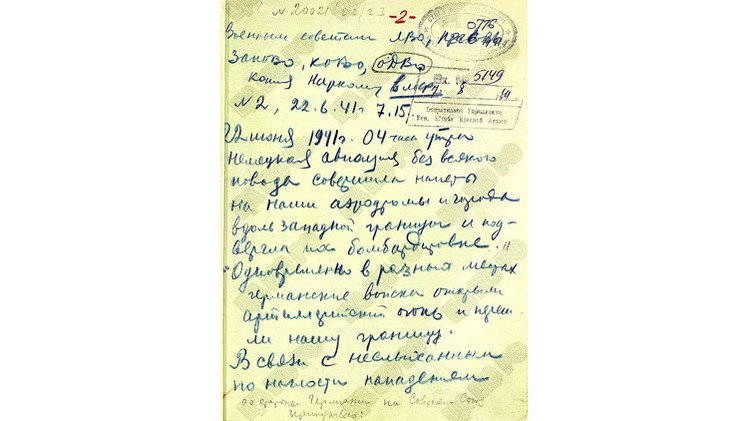 N 20021 -2-
0776
Военным советам ЛВО, ПрибВО,
ЗапОВО, КОВО, ОДВО
Вх. № 5149
Копия Наркому В.мор. фл.
Оперативное Управление
Ген. Штаба Красной Армии
N 2, 22.6.41г 7.15
22 июня 1941г. 04 часа утра
немецкая авиация без всякого
повода совершила налеты
на наши аэродромы и города
вдоль западной границы и под-
вергла их бомбардировке.
Одновременно в разных местах
германские войска открыли
артиллерийский огонь и переш-
ли нашу границу.
В связи с неслыханным
по наглости нападением
со стороны Германии на Советский Союз
приказываю: